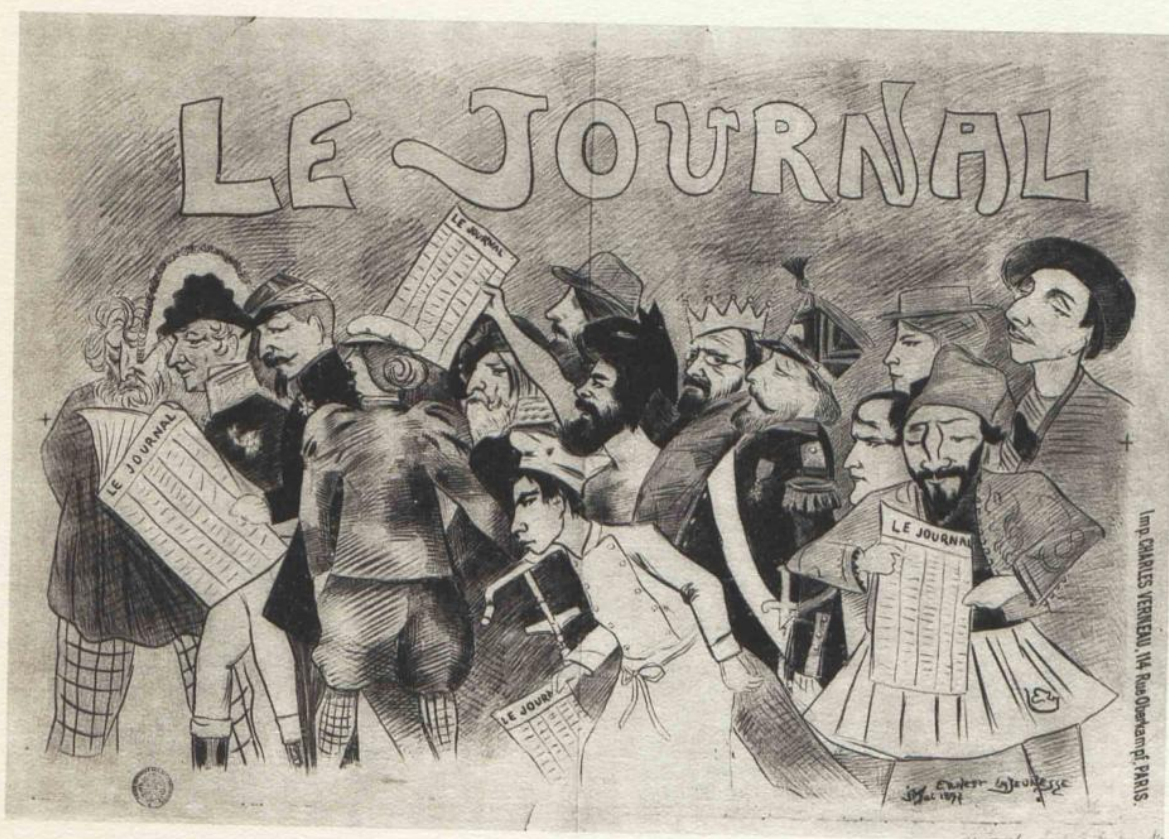 LE JOURNAL
LE JOURNAL
LE JOURNAL
LE JOURNAL
LE JOURN
ERNEST LAJEUNESSE
Imp. CHARLES VERNEAU, 114 Rue Oberkampf, PARIS.